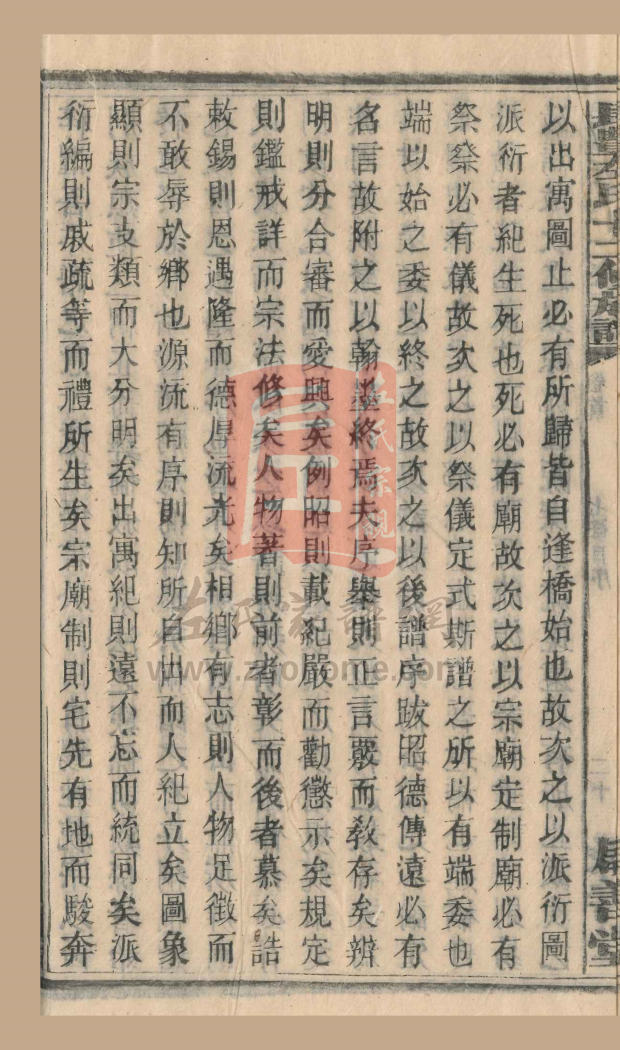 以出寓圖止必有所歸皆自逢橋始也故次之以派衍圖
派衍者紀生死也死必有廟故次之以宗廟定制廟必有
祭祭必有儀故次之以祭儀定式斯譜之所以有端委也
端以始之委以終之故次之以後譜序跋昭德傳遠必有
名言故附之以翰墨終焉夫序舉則正言嚴而教存矣辨
明則分合審而愛興矣例昭則載紀嚴而勸懲示矣規定
則鑑戒詳而宗法修矣人物著則前者彰而後者慕矣誥
敕錫則恩遇隆而德厚流光矣相鄉有志則人物足徵而
不敢辱於鄉也源流有序則知所自出而人紀立矣圖象
顯則宗支類而大分明矣出寓紀則遠不忘而統同矣派
衍編則戚疏等而禮所生矣宗廟制則宅先有地而駿奔
左氏宗親
左氏家譜網